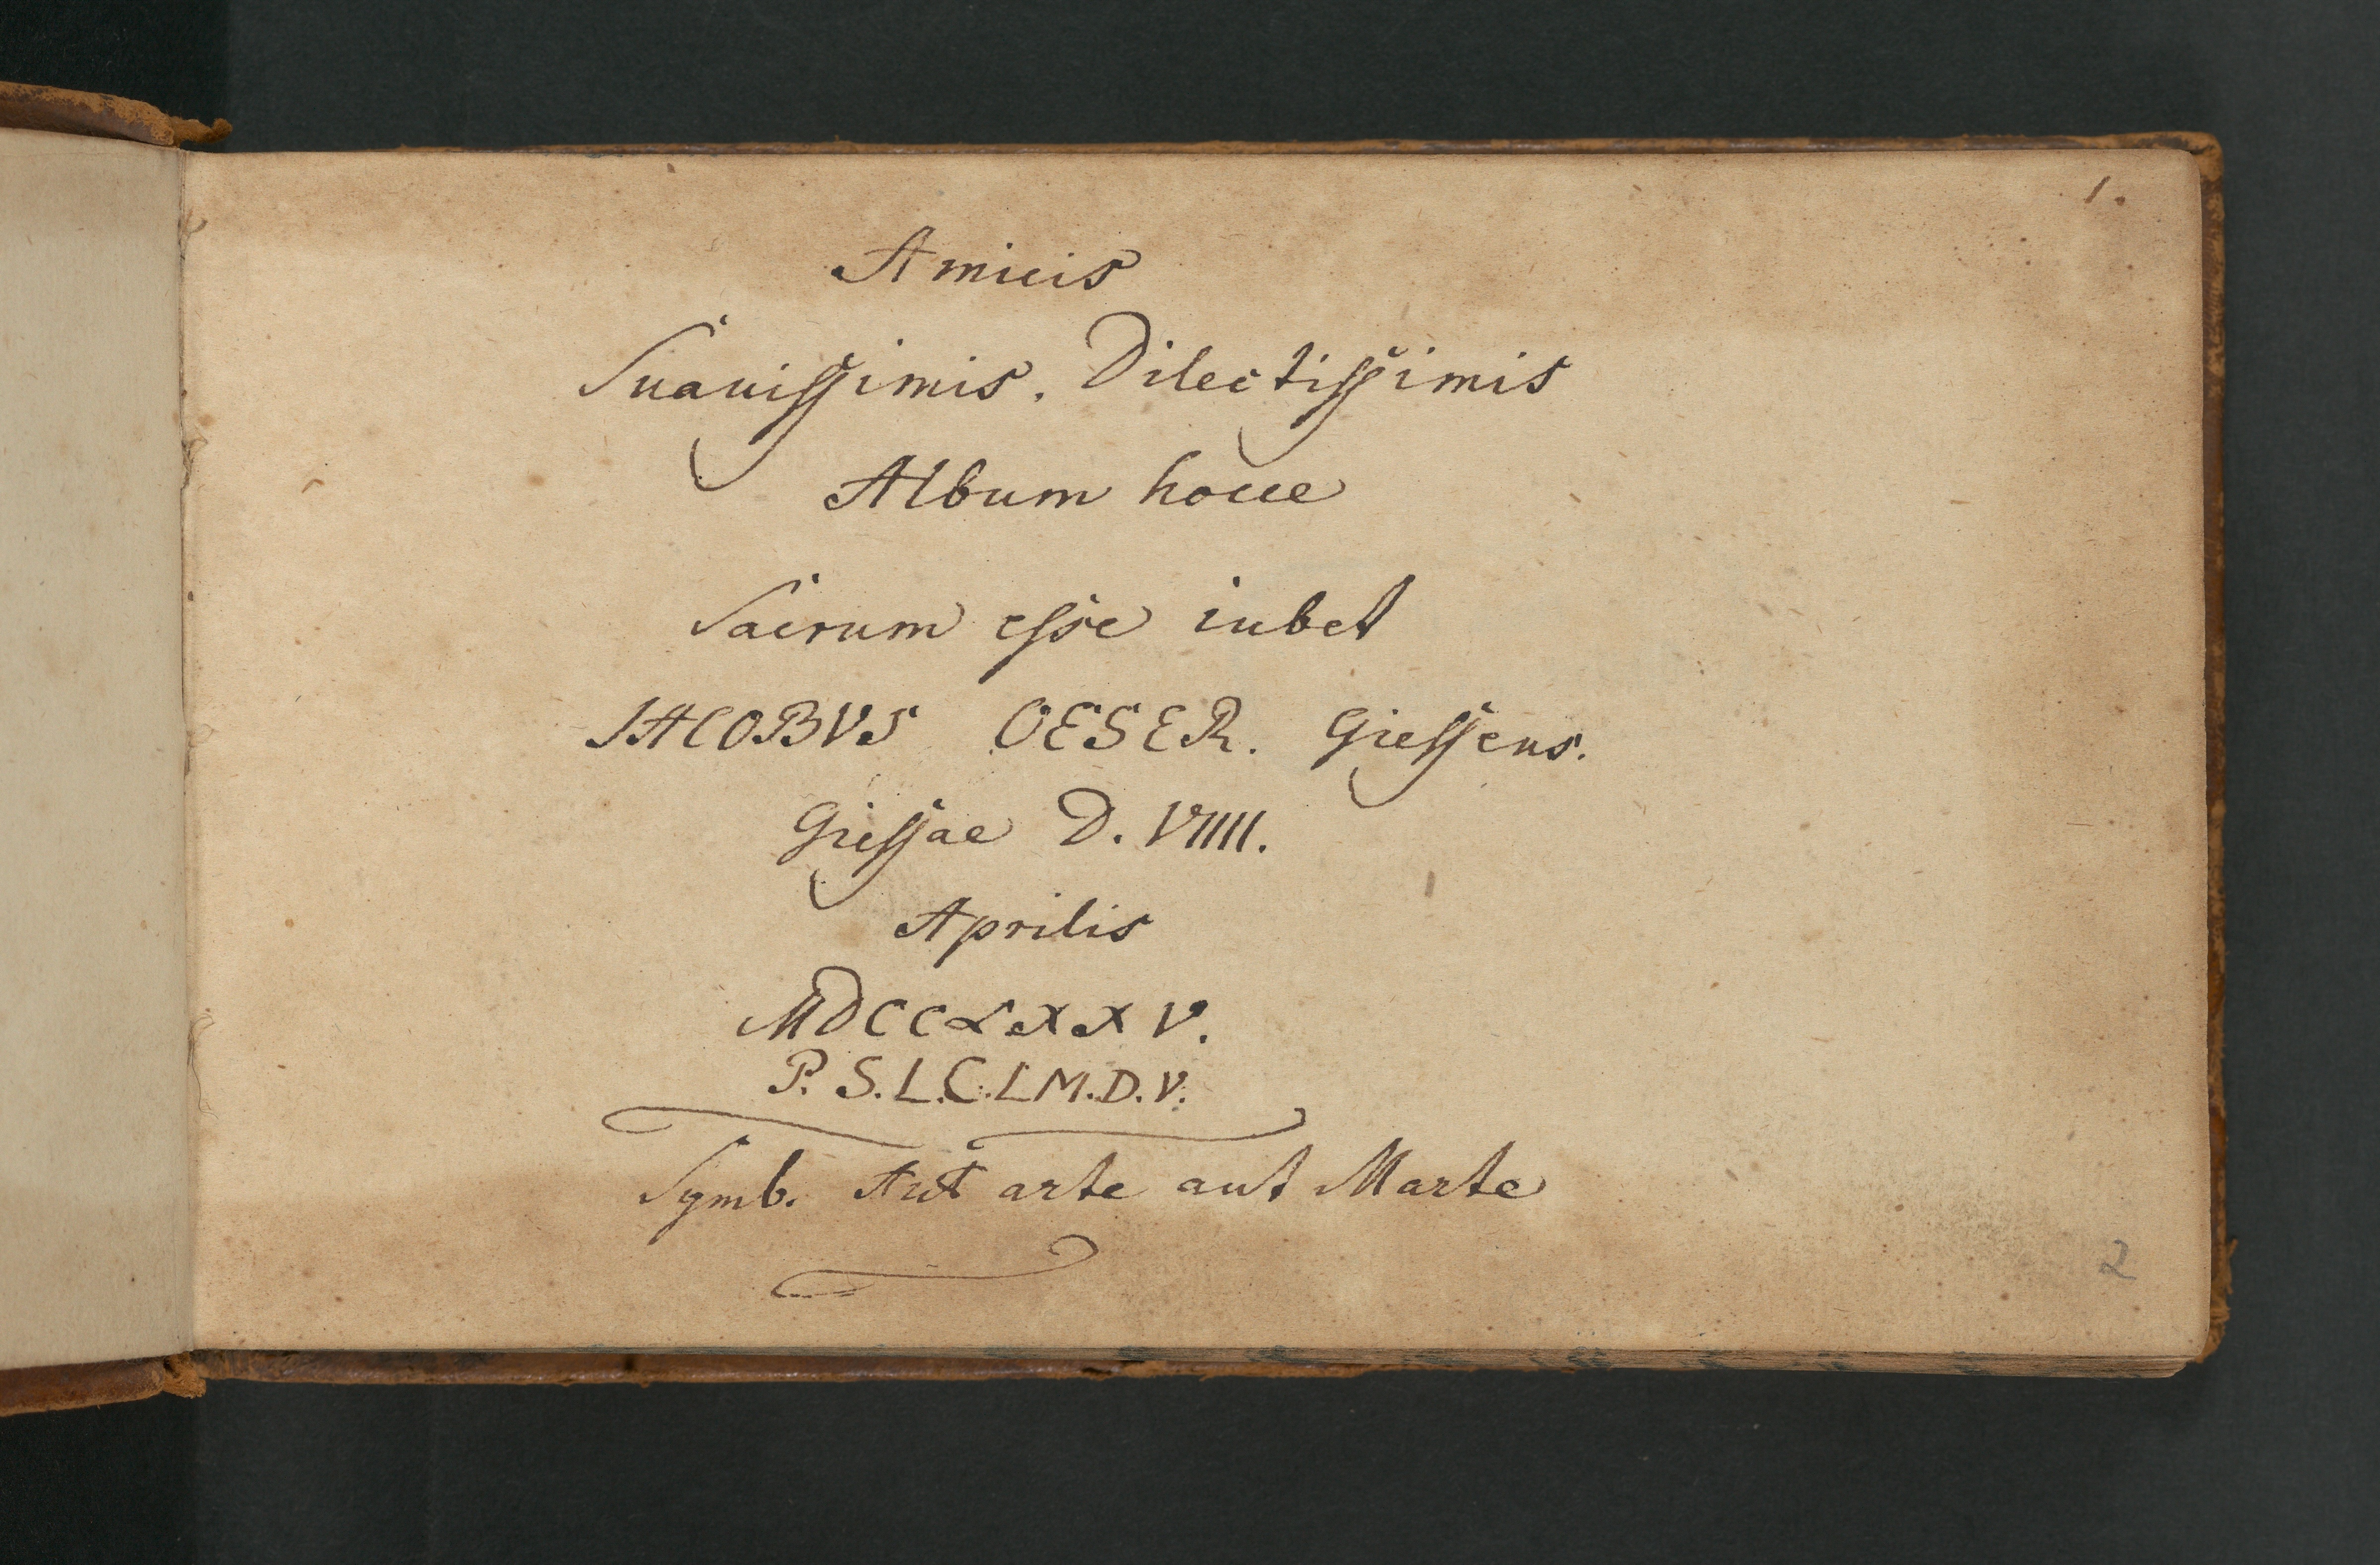 1.
Amicis
Suauissimis. Dilectissimis
Album hocce
Sacrum esse iubet
IACOBVS OESER. Giessens.
Giessae D. VIIII.
Aprilis
MDCCLXXV.
P. S. L. C. L M. D. V.
Symb. Aut arte aut Marte
2